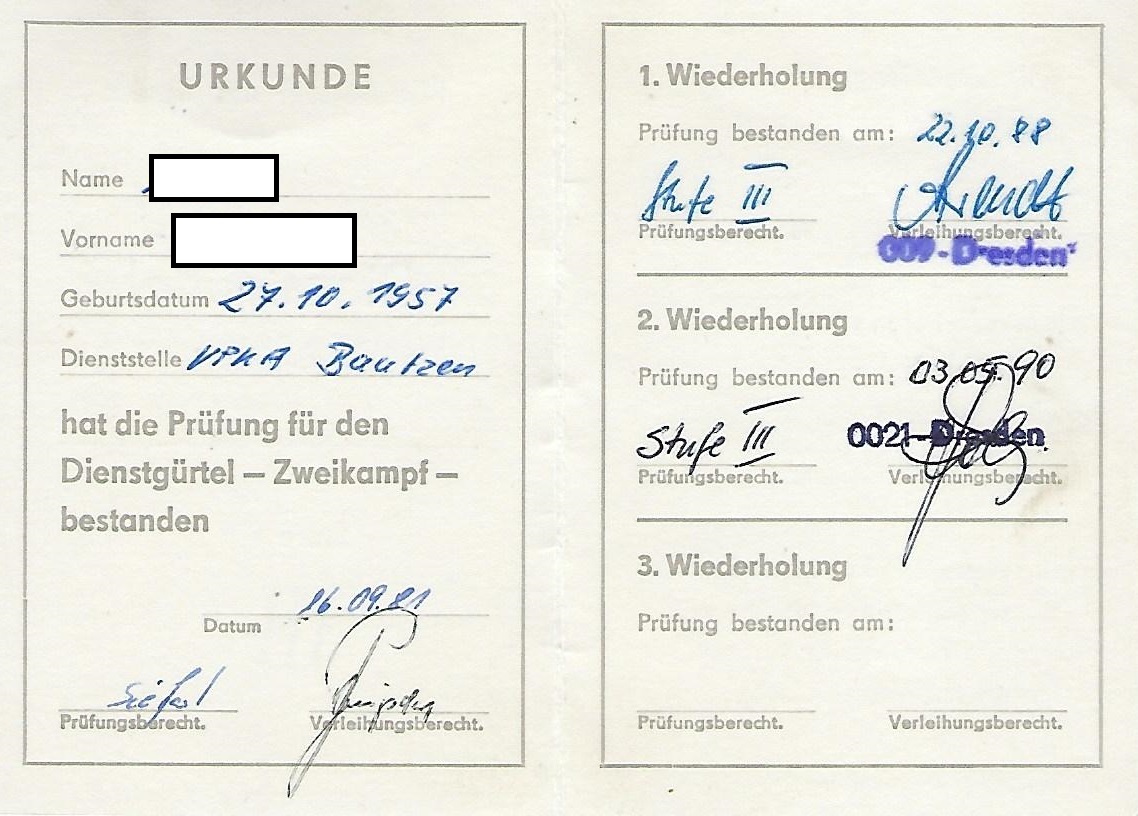 URKUNDE
Name
Vorname
Geburtsdatum 27.10.1957
Dienststelle VPKA Bautzen
hat die Prüfung für den
Dienstgürtel – Zweikampf –
bestanden
16.09.81
Datum
Prüfungsberecht. Verleihungsberecht.
1. Wiederholung
Prüfung bestanden am: 22.10.88
Stufe III
Prüfungsberecht. Verleihungsberecht.
009-Dresden
2. Wiederholung
Prüfung bestanden am: 03.05.90
Stufe III 0021-Dresden
Prüfungsberecht. Verleihungsberecht.
3. Wiederholung
Prüfung bestanden am:
Prüfungsberecht. Verleihungsberecht.